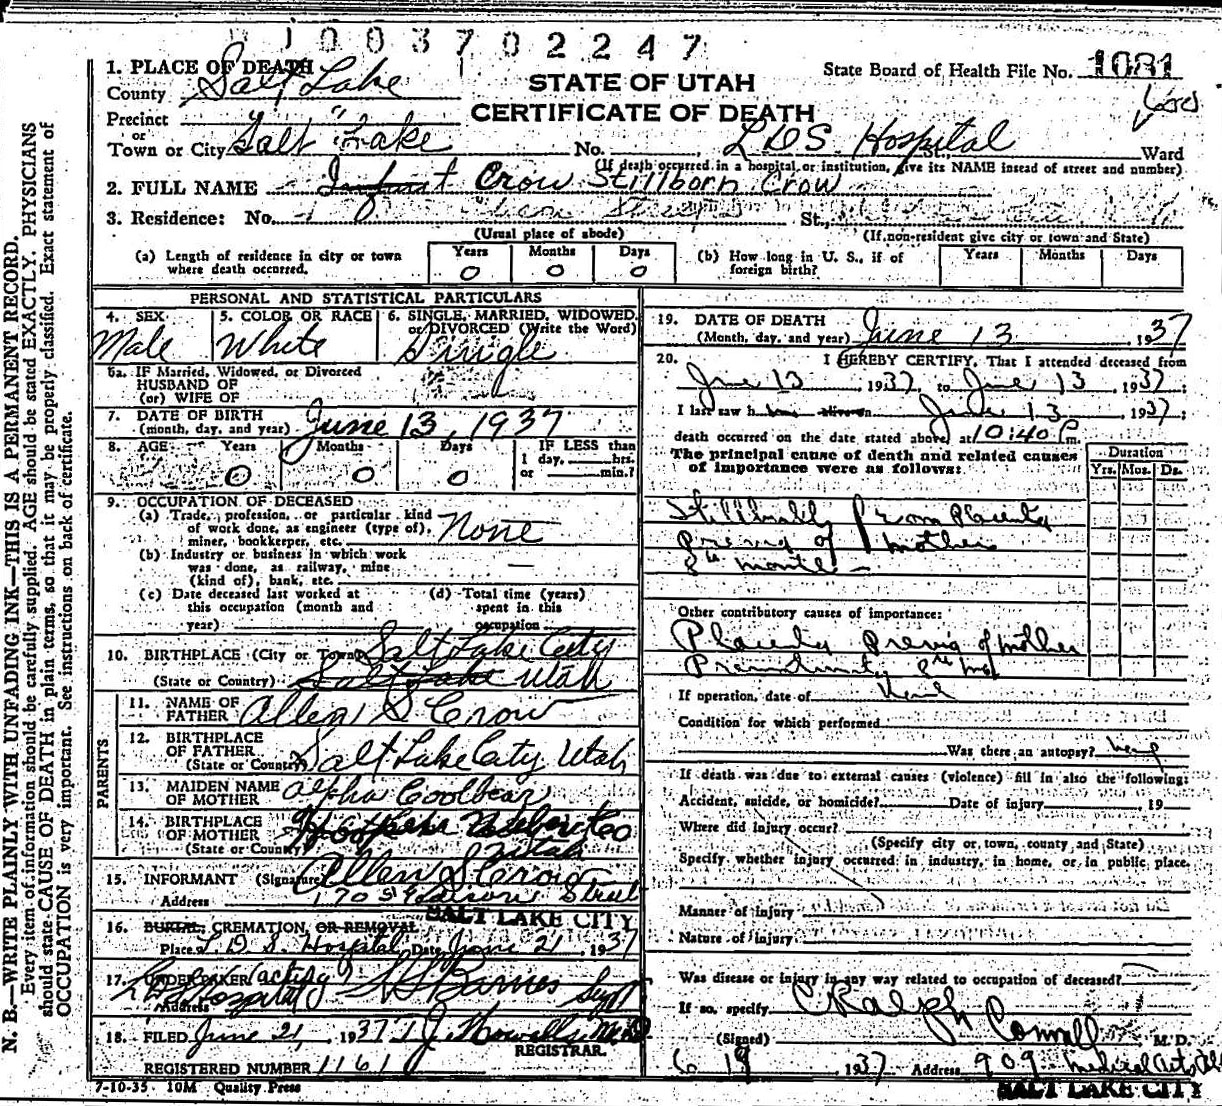 1003702247
1. PLACE OF DEATH
County Salt Lake
STATE OF UTAH
CERTIFICATE OF DEATH
State Board of Health File No. 1081
Precinct "
or
Town or City Salt Lake No. L D S Hospital St., Ward
(If death occurred in a hospital or institution, give its NAME insead of street and number)
2. FULL NAME Infant Crow Stillborn Crow
3. Residence: No. St.,
(Usual place of abode) (If non-resident give city or town and State)
(a) Length of residence in city or town where death occurred. Years 0 Months 0 Days 0
(b) How long in U. S., if of foreign birth? Years Months Days
PERSONAL AND STATISTICAL PARTICULARS
4. SEX Male
5. COLOR OR RACE White
6. SINGLE, MARRIED, WIDOWED, or DIVORCED (Write the Word) Single
6a. IF Married, Widowed, or Divorced
HUSBAND OF
(or) WIFE OF
7. DATE OF BIRTH
(month, day, and year) June 13, 1937
8. AGE Years 0 Months 0 Days 0 IF LESS than
1 day, hrs.
or min.?
9. OCCUPATION OF DECEASED
(a) Trade, profession, or particular kind
of work done, as engineer (type of),
miner, bookkerper, etc. None
(b) Industry or business in which work
was done, as railway, mine
(kind of), bank, etc. —
(c) Date deceased last worked at
this occupation (month and
year)
(d) Total time (years)
spent in this
occupation
10. BIRTHPLACE (City or Town) Salt Lake City
(State or Country) Salt Lake Utah
PARENTS
11. NAME OF
FATHER Allen S Crow
12. BIRTHPLACE
OF FATHER
(State or Country) Salt Lake City Utah
13. MAIDEN NAME
OF MOTHER Alpha Coolbear
14. BIRTHPLACE
OF MOTHER
(State or Country) Co
Utah
15. INFORMANT (Signature) Allen S Crow
Address 170 Street
SALT LAKE CITY
16. BURIAL, CREMATION, OR REMOVAL
Place L. D. S. Hospital Date June 21, 1937
17. UNDERTAKER (acting) Barnes Supt
Address Hospital
18. FILED June 21, 1937 J. Howells M.D.
REGISTRAR.
REGISTERED NUMBER 1161
7-10-35 10M Quality Press
19. DATE OF DEATH
(Month, day, and year) June 13, 1937
20. I HEREBY CERTIFY, That I attended deceased from
June 13, 1937, to June 13, 1937;
I last saw h alive on June 13, 1937;
death occurred on the date stated above, at 10:40 P m.
The principal cause of death and related causes
of importance were as follows:
Duration
Yrs. Mos. Ds.
from Placenta
Previa of mother
8th month —
Other contributory causes of importance:
Placenta Previa of mother
Prematurity 8th mo
If operation, date of
Condition for which performed
Was there an autopsy?
If death was due to external causes (violence) fill in also the following:
Accident, suicide, or homicide? Date of injury , 19
Where did injury occur?
(Specify city or town, county, and State)
Specify whether injury occurred in industry, in home, or in public place.
Manner of injury
Nature of injury
Was disease or injury in any way related to occupation of deceased?
If so, specify
(Signed) C Ralph M. D.
6 19 1937 Address 909 Medical Arts Bld
SALT LAKE CITY
N. B.—WRITE PLAINLY WITH UNFADING INK—THIS IS A PERMANENT RECORD.
Every item of information should be carefully supplied. AGE should be stated EXACTLY. PHYSICIANS
should state CAUSE OF DEATH in plain terms, so that it may be properly classified. Exact statement of
OCCUPATION is very important. See instructions on back of certificate.